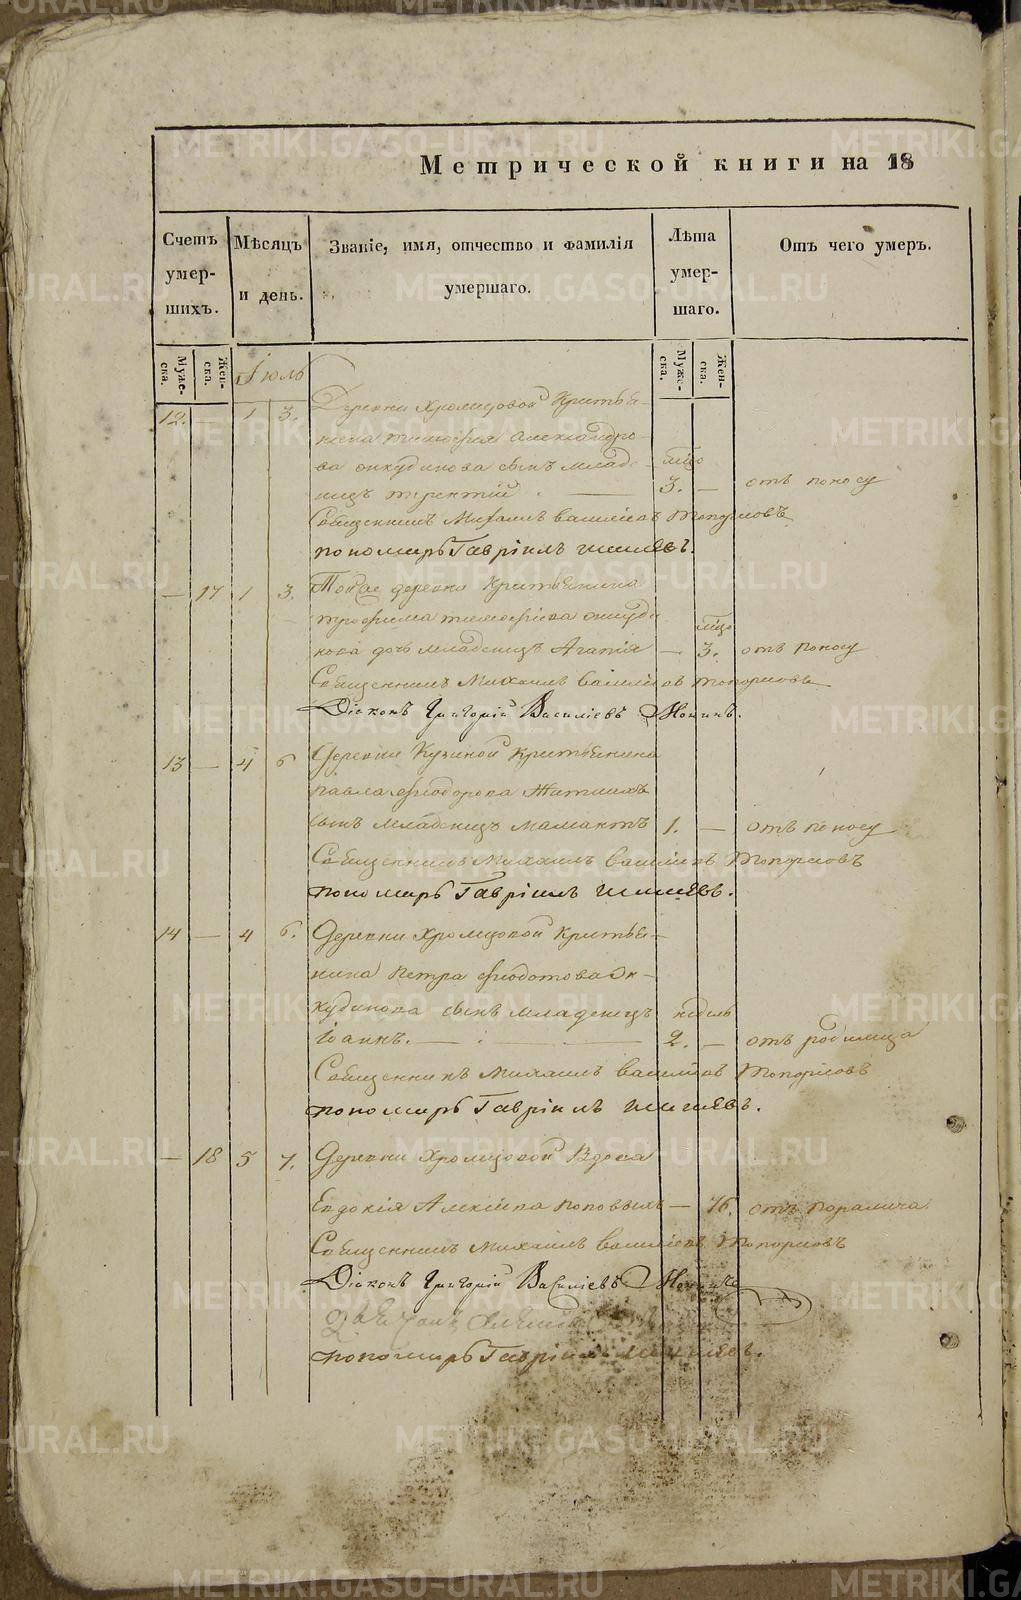 Метрической книги на 18
Счетъ умер- шихъ.
Мѣсяцъ и день.
Званіе, имя, отчество и фамилія умершаго.
Лѣта умер- шаго.
Отъ чего умеръ.
Муже- ска. Жен- ска.
Муже- ска. Жен- ска.
Іюль
12. — 1 3. Деревни Хромцовой Крестья-
нина Тимофея Александро-
ва Анкудинова сынъ младе-
нецъ Терентій — 3. — отъ поносу
Священникъ Михаилъ Васильевъ Топорковъ
пономарь Гавріилъ
— 17 1 3. Тойже деревни Крестьянина
Трофима Тимофеева Анкуди
нова дочь младенецъ Агапія — 3. отъ поносу
Священникъ Михаилъ Васильевъ Топорковъ
Діаконъ Григорій Василіевъ
13 — 4 6 Деревни Кузиной Крестьянина
Павла Феодорова
сынъ младенецъ Мамантъ 1. — отъ поносу
Священникъ Михаилъ Васильевъ Топорковъ
пономарь Гавріилъ
14 — 4 6. Деревни Хромцовой Крестья-
нина Петра Федотова Ан-
кудинова сынъ младенецъ недель
Іоаннъ. — 2. — отъ родимца
Священникъ Михаилъ Васильевъ Топорковъ
пономарь Гавріилъ
— 18 5 7. Деревни Хромцовой Вдова
Евдокія Алексѣева Поповыхъ — 76. отъ паралича
Священникъ Михаилъ Васильевъ Топорковъ
Діаконъ Григорій Василіевъ
пономарь Гавріилъ
METRIKI.GASO-URAL.RU